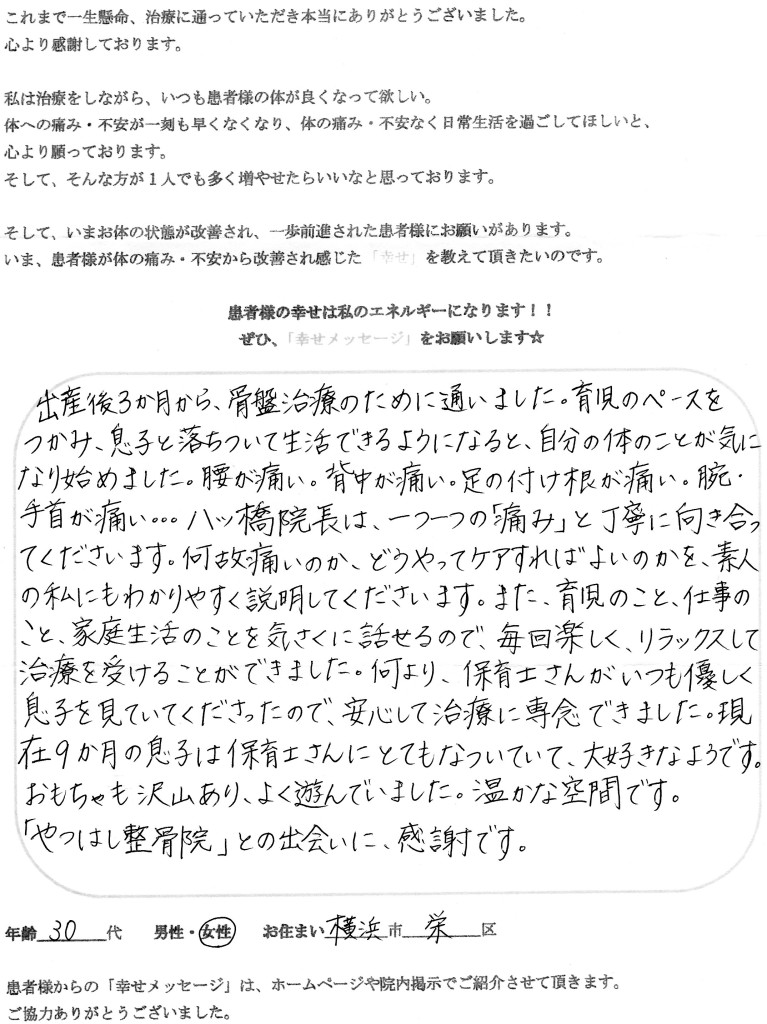 これまで一生懸命、治療に通っていただき本当にありがとうございました。
心より感謝しております。
私は治療をしながら、いつも患者様の体が良くなって欲しい。
体への痛み・不安が一刻も早くなくなり、体の痛み・不安なく日常生活を過ごしてほしいと、
心より願っております。
そして、そんな方が１人でも多く増やせたらいいなと思っております。
そして、いまお体の状態が改善され、一歩前進された患者様にお願いがあります。
いま、患者様が体の痛み・不安から改善され感じた「幸せ」を教えて頂きたいのです。
患者様の幸せは私のエネルギーになります！！
ぜひ、「幸せメッセージ」をお願いします☆
出産後3か月から、骨盤治療のために通いました。育児のペースを
つかみ、息子と落ちついて生活できるようになると、自分の体のことが気に
なり始めました。腰が痛い。背中が痛い。足の付け根が痛い。腕・
手首が痛い…八ッ橋院長は、一つ一つの「痛み」と丁寧に向き合っ
てくださいます。何故痛いのか、どうやってケアすればよいのかを、素人
の私にもわかりやすく説明してくださいます。また、育児のこと、仕事の
こと、家庭生活のことを気さくに話せるので、毎回楽しく、リラックスして
治療を受けることができました。何より、保育士さんがいつも優しく
息子を見ていてくださったので、安心して治療に専念できました。現
在9か月の息子は保育士さんにとてもなついていて、大好きなようです。
おもちゃも沢山あり、よく遊んでいました。温かな空間です。
「やつはし整骨院」との出会いに、感謝です。
年齢 30 代 男性・女性 お住まい 横浜 市 栄 区
患者様からの「幸せメッセージ」は、ホームページや院内掲示でご紹介させて頂きます。
ご協力ありがとうございました。